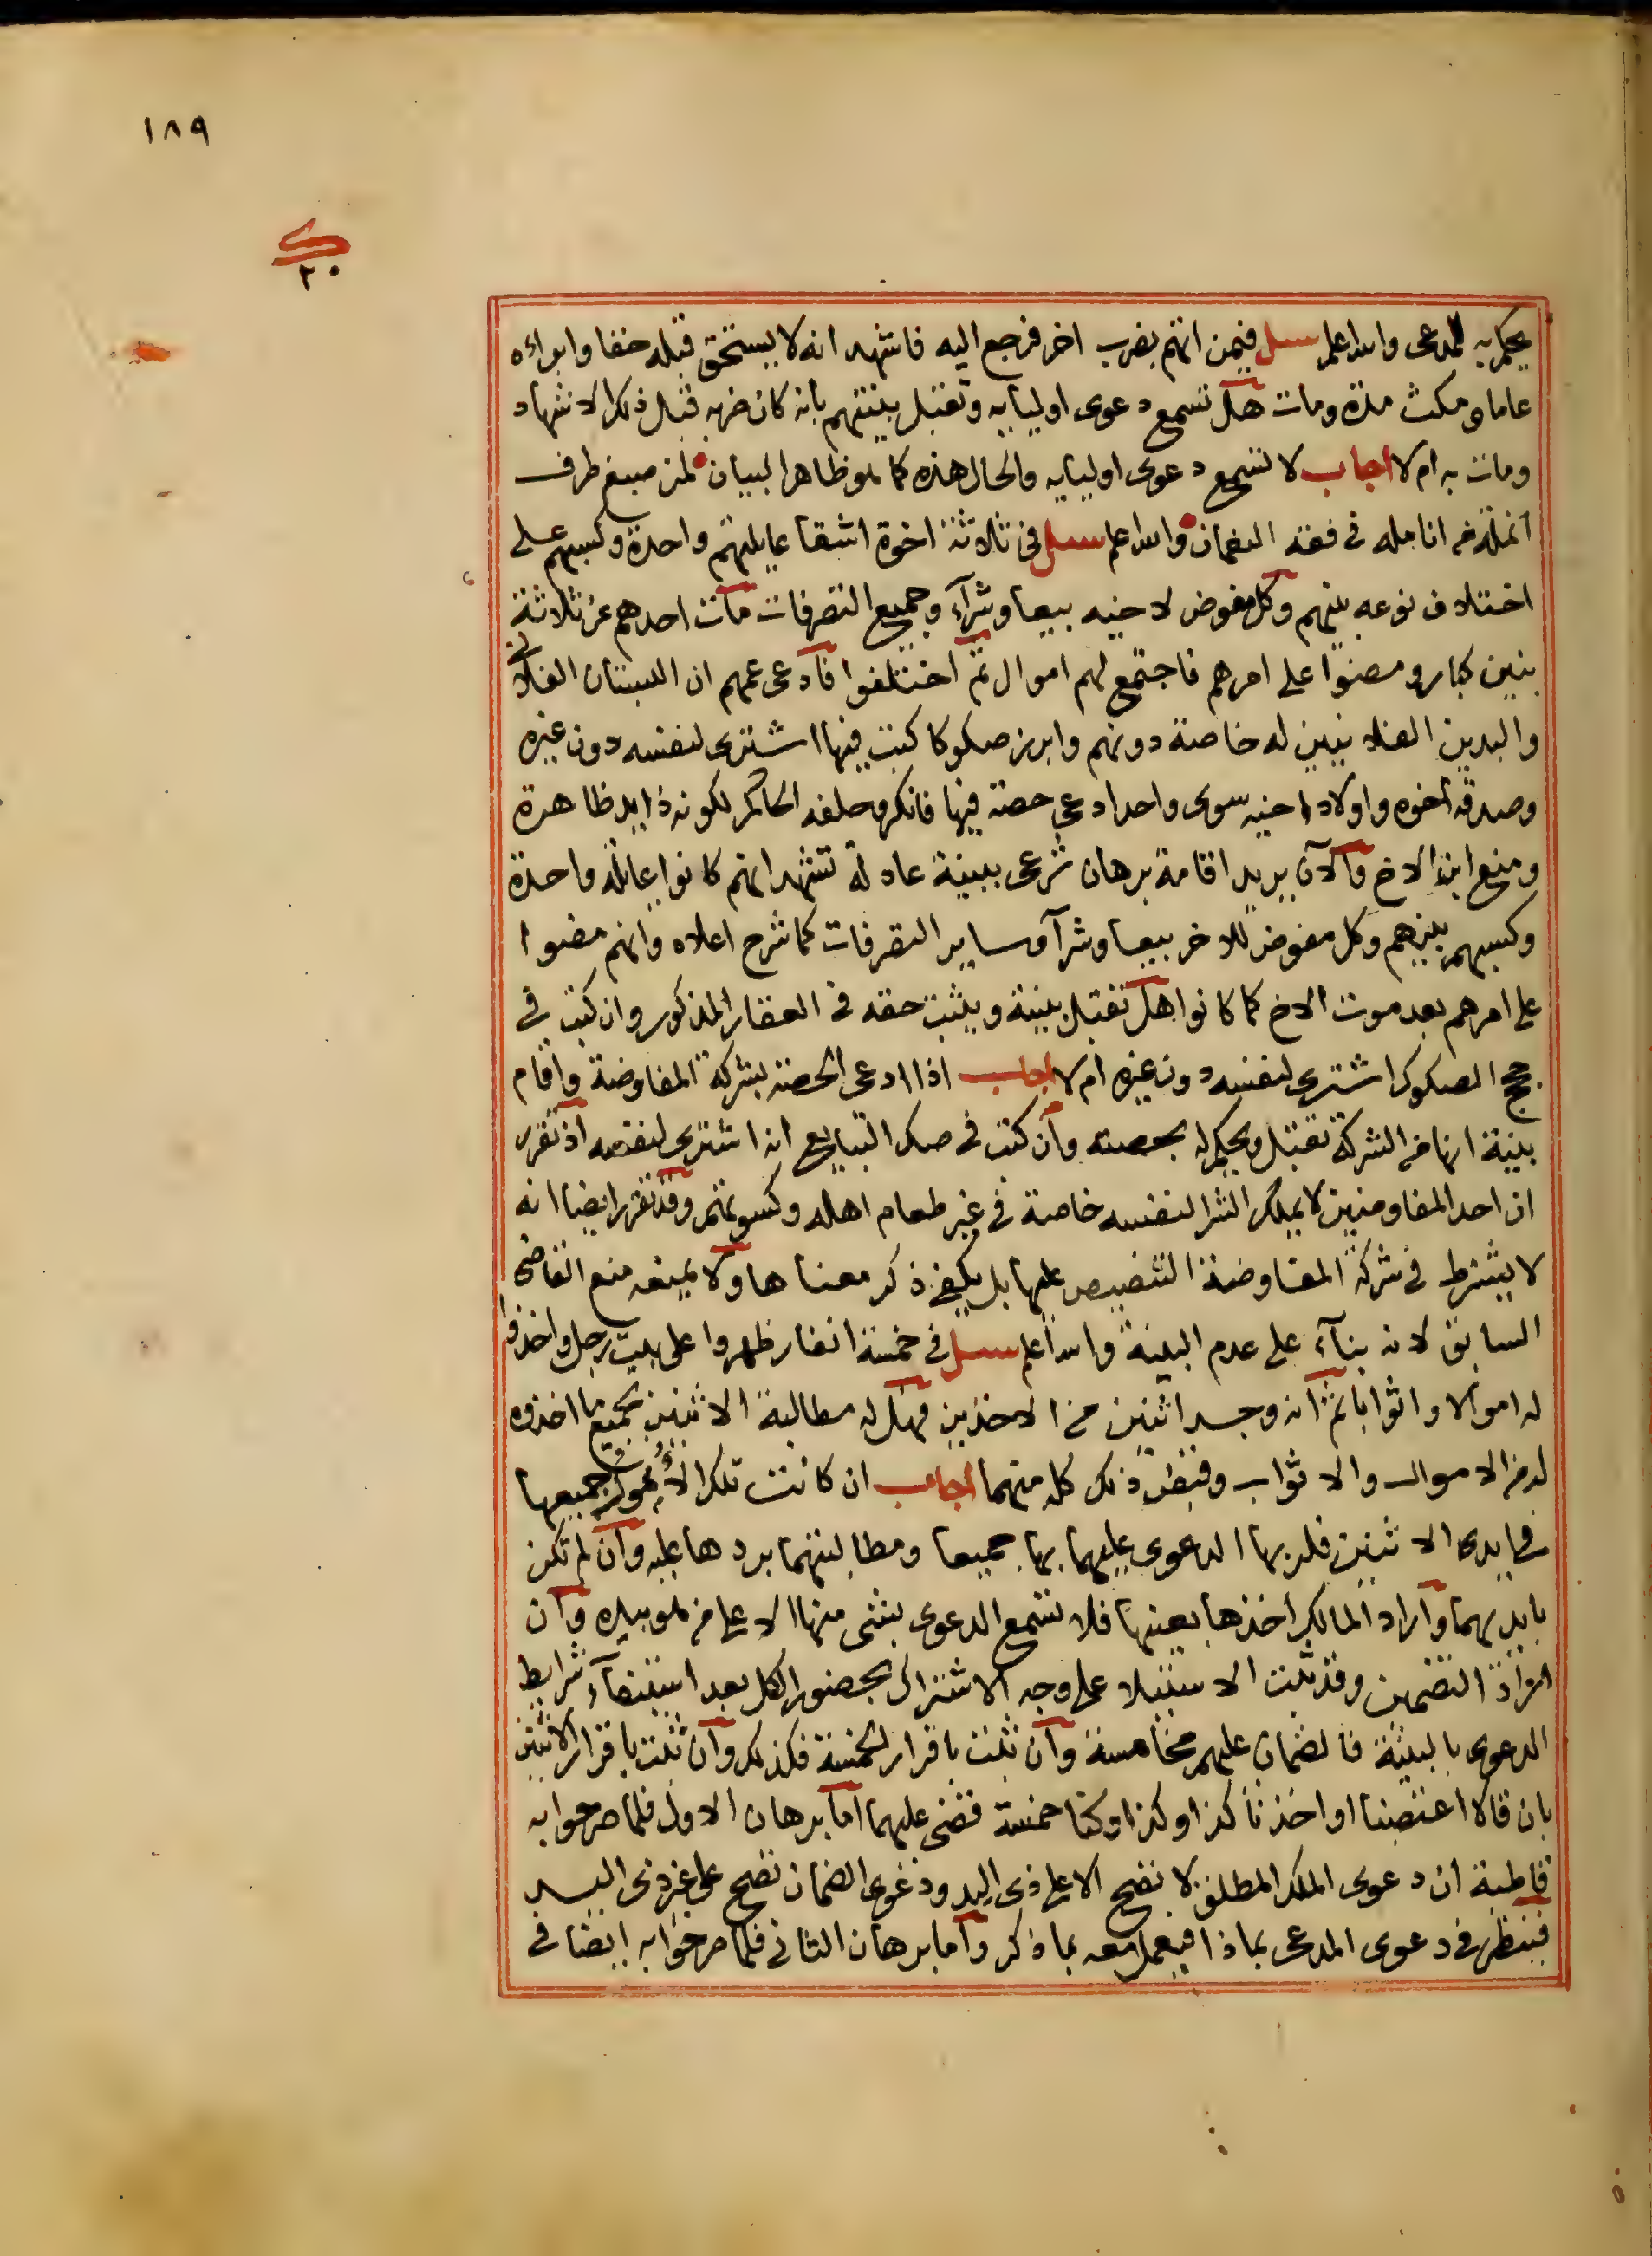 ١٨٩
٢٠
يحكم به للمدعى والله اعلم سئل فيمن اتهم بضرب اخر فرجع اليه فاشهد انه لا يستحق قبله حقا وابراءه
عاما ومكث مدة ومات هل تسمع دعوى اوليايه وتقبل بينتهم بانه كان ضربه قبل ذلك الاشهاد
ومات به ام لا اجاب لا تسمع دعوى اوليايه والحال هذه كما هو ظاهر البيان لمن صبغ طرف
انملة من انامله فى فقه النعمان والله اعلم سئل فى ثلاثة اخوة اشقا عايلتهم واحدة وكسبهم على
اختلاف نوعه بينهم وكل مفوض لاخيه بيعا وشرآء وجميع التصرفات مات احدهم عن ثلاثة
بنين كبار ومضوا على امرهم فاجتمع لهم اموال ثم اختلفوا فادعى عمهم ان البستان الفلانى
والبدين الفلانيين له خاصة دونهم وابرز صكوكا كتب فيها اشترى لنفسه دون غيره
وصدقه اخوه واولاد اخيه سوى واحد ادعى حصته فيها فانكر وحلفه الحاكم لكونه ذا يد ظاهرة
ومنع ابن الاخ والآن يريد اقامة برهان شرعى ببينة عادلة تشهد انهم كانوا عائلة واحدة
وكسبهم بينهم وكل مفوض للاخر بيعا وشرآ وساير التصرفات كما شرح اعلاه وانهم مضوا
على امرهم بعد موت الاخ كما كانوا هل تقبل بينة ويثبت حقه فى العقار المذكور وان كتب فى
حجج الصكوك اشترى لنفسه دون غيره ام لا اجاب اذا ادعى الحصة بشركة المفاوضة واقام
بينة انها من الشركة تقبل ويحكم له بحصته وان كتب فى صك التبايع انه اشترى لنفسه اذ تقرر
ان احد المفاوضين لا يملك الشرا لنفسه خاصة فى غير طعام اهله وكسوتهم وقد تقرر ايضا انه
لا يشترط فى شركة المفاوضة التنصيص عليها بل يكفى ذكر معناها ولا يمنعه منع القاضى
السابق لانه بنآء على عدم البينة والله اعلم سئل فى خمسة انفار ظهروا على بيت رجل واخذوا
له اموالا واثوابا ثم انه وجد اثنين من الاخذين فهل له مطالبة الاثنين بجميع ما اخذوه
له من الاموال والاثواب وقبض ذلك كله منهما اجاب ان كانت تلك الاموال جميعها
فى ايدى الاثنين فله بها الدعوى عليهما بها جميعا ومطالبتهما بردها عليه وان لم تكن
بايديهما واراد المالك اخذها بعينها فلا تسمع الدعوى بشى منها الا على من هو بيده وان
اراد التضمين وقد ثبت الاستيلا على وجه الاشتراك بحضور الكل بعد استيفآء شرايط
الدعوى بالبينة فالضمان عليهم مخامسة وان ثبت باقرار الخمسة فكذلك وان ثبت باقرار الاثنين
بان قالا اغتصبنا او اخذنا كذا وكذا وكنا خمسة قضى عليهما اما برهان الاول فلما صرحوا به
قاطبة ان دعوى الملك المطلق لا تصح الا على ذى اليد ودعوى الضمان تصح على غير ذى اليد
فينظر فى دعوى المدعى بماذا فيعمل معه بما ذكر واما برهان الثانى فلما صرحوا به ايضا فى